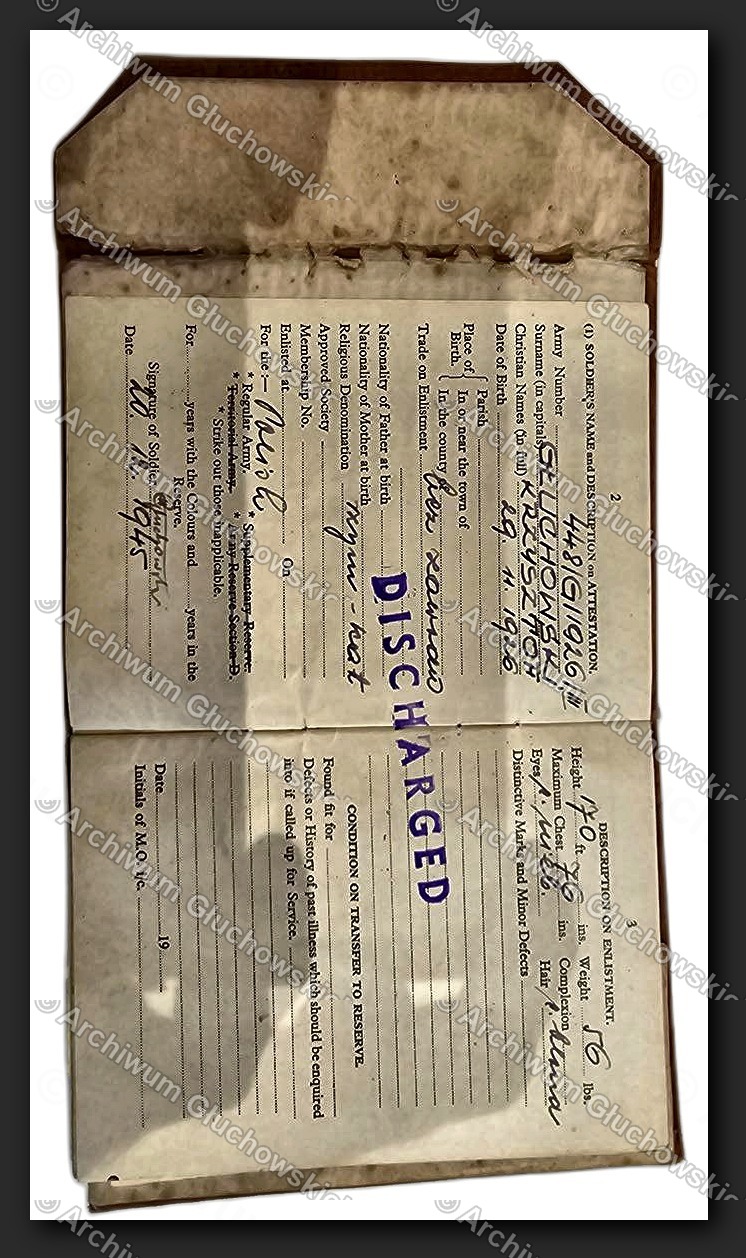 2
(1) SOLDIER'S NAME and DESCRIPTION on ATTESTATION.
Army Number 448/G/1926/III
Surname (in capitals) GŁUCHOWSKI
Christian Names (in full) KRZYSZTOF
Date of Birth 29 11. 1926
Place of Birth { Parish
In or near the town of
In the county
Trade on Enlistment bez zawodu
Nationality of Father at birth
Nationality of Mother at birth
Religious Denomination rzym-kat
Approved Society
Membership No.
Enlisted at On
For the :— Polish
* Regular Army. * Supplementary Reserve.
* Territorial Army. * Army Reserve Section D.
* Strike out those inapplicable.
For years with the Colours and years in the
Reserve.
Signature of Soldier Głuchowski
Date 20. 1945
DISCHARGED
3
DESCRIPTION ON ENLISTMENT.
Height 170 ft. ins. Weight 56 lbs.
Maximum Chest 76 ins. Complexion
Eyes Hair
Distinctive Marks and Minor Defects
CONDITION ON TRANSFER TO RESERVE.
Found fit for
Defects or History of past illness which should be enquired
into if called up for Service.
Date 19
Initials of M.O. i/c.
© Archiwum Głuchowskich